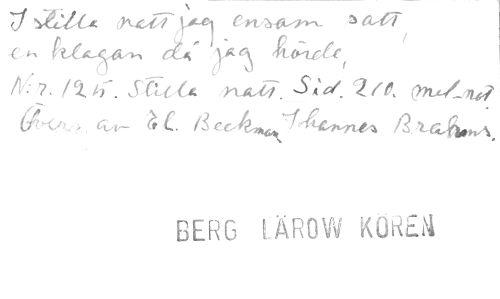 I stilla natt jag ensam satt,
en klagan då jag hörde,
N:r. 125. Stilla natt. Sid. 210. mel-not.
Övers. av El. Beckman, Johannes Brahms.
BERG LÄROW KÖREN